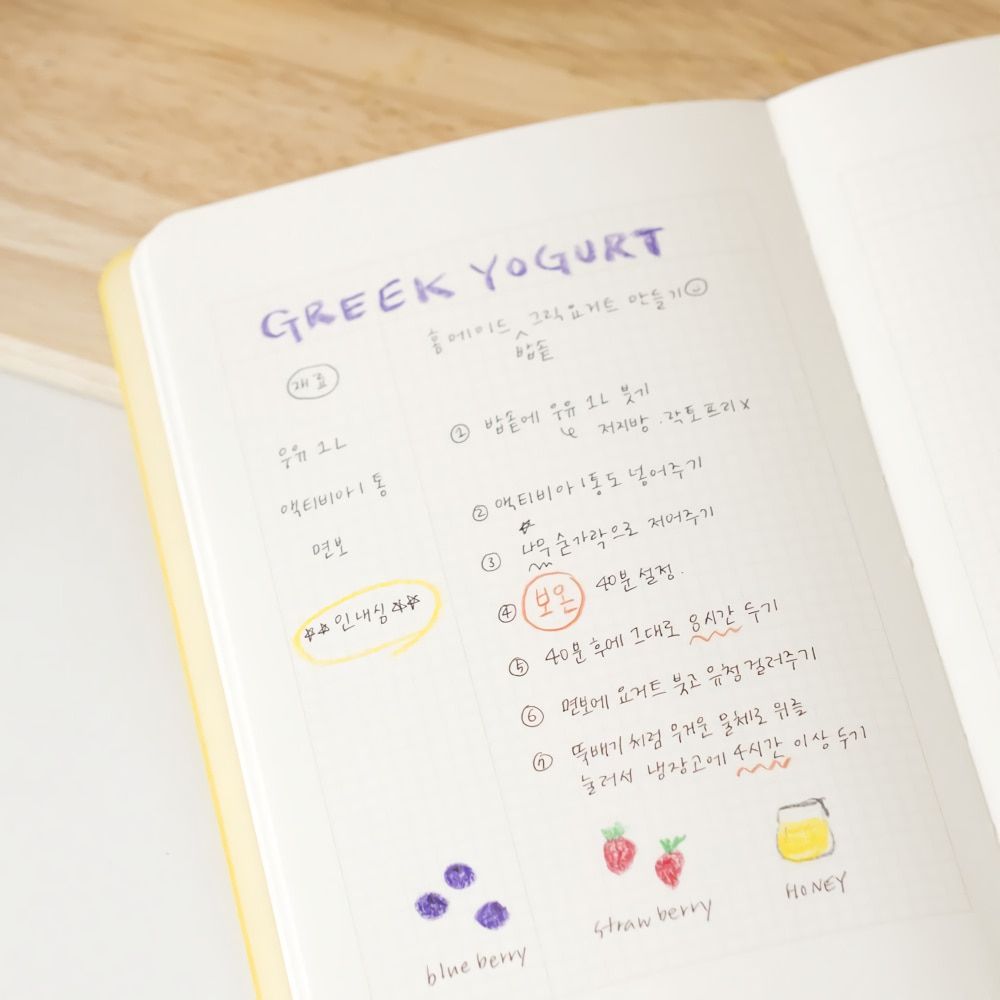 GREEK YOGURT
홈메이드 그릭요거트 만들기
밥솥
재료
우유 1L
액티비아 1통
면보
인내심
① 밥솥에 우유 1L 붓기
저지방·락토프리 x
② 액티비아 1통도 넣어주기
③ 나무숟가락으로 저어주기
④ 보온 40분 설정.
⑤ 40분 후에 그대로 8시간 두기
⑥ 면보에 요거트 붓고 유청 걸러주기
⑦ 뚝배기처럼 무거운 물체로 위를
눌러서 냉장고에 4시간 이상 두기
blueberry
strawberry
HONEY